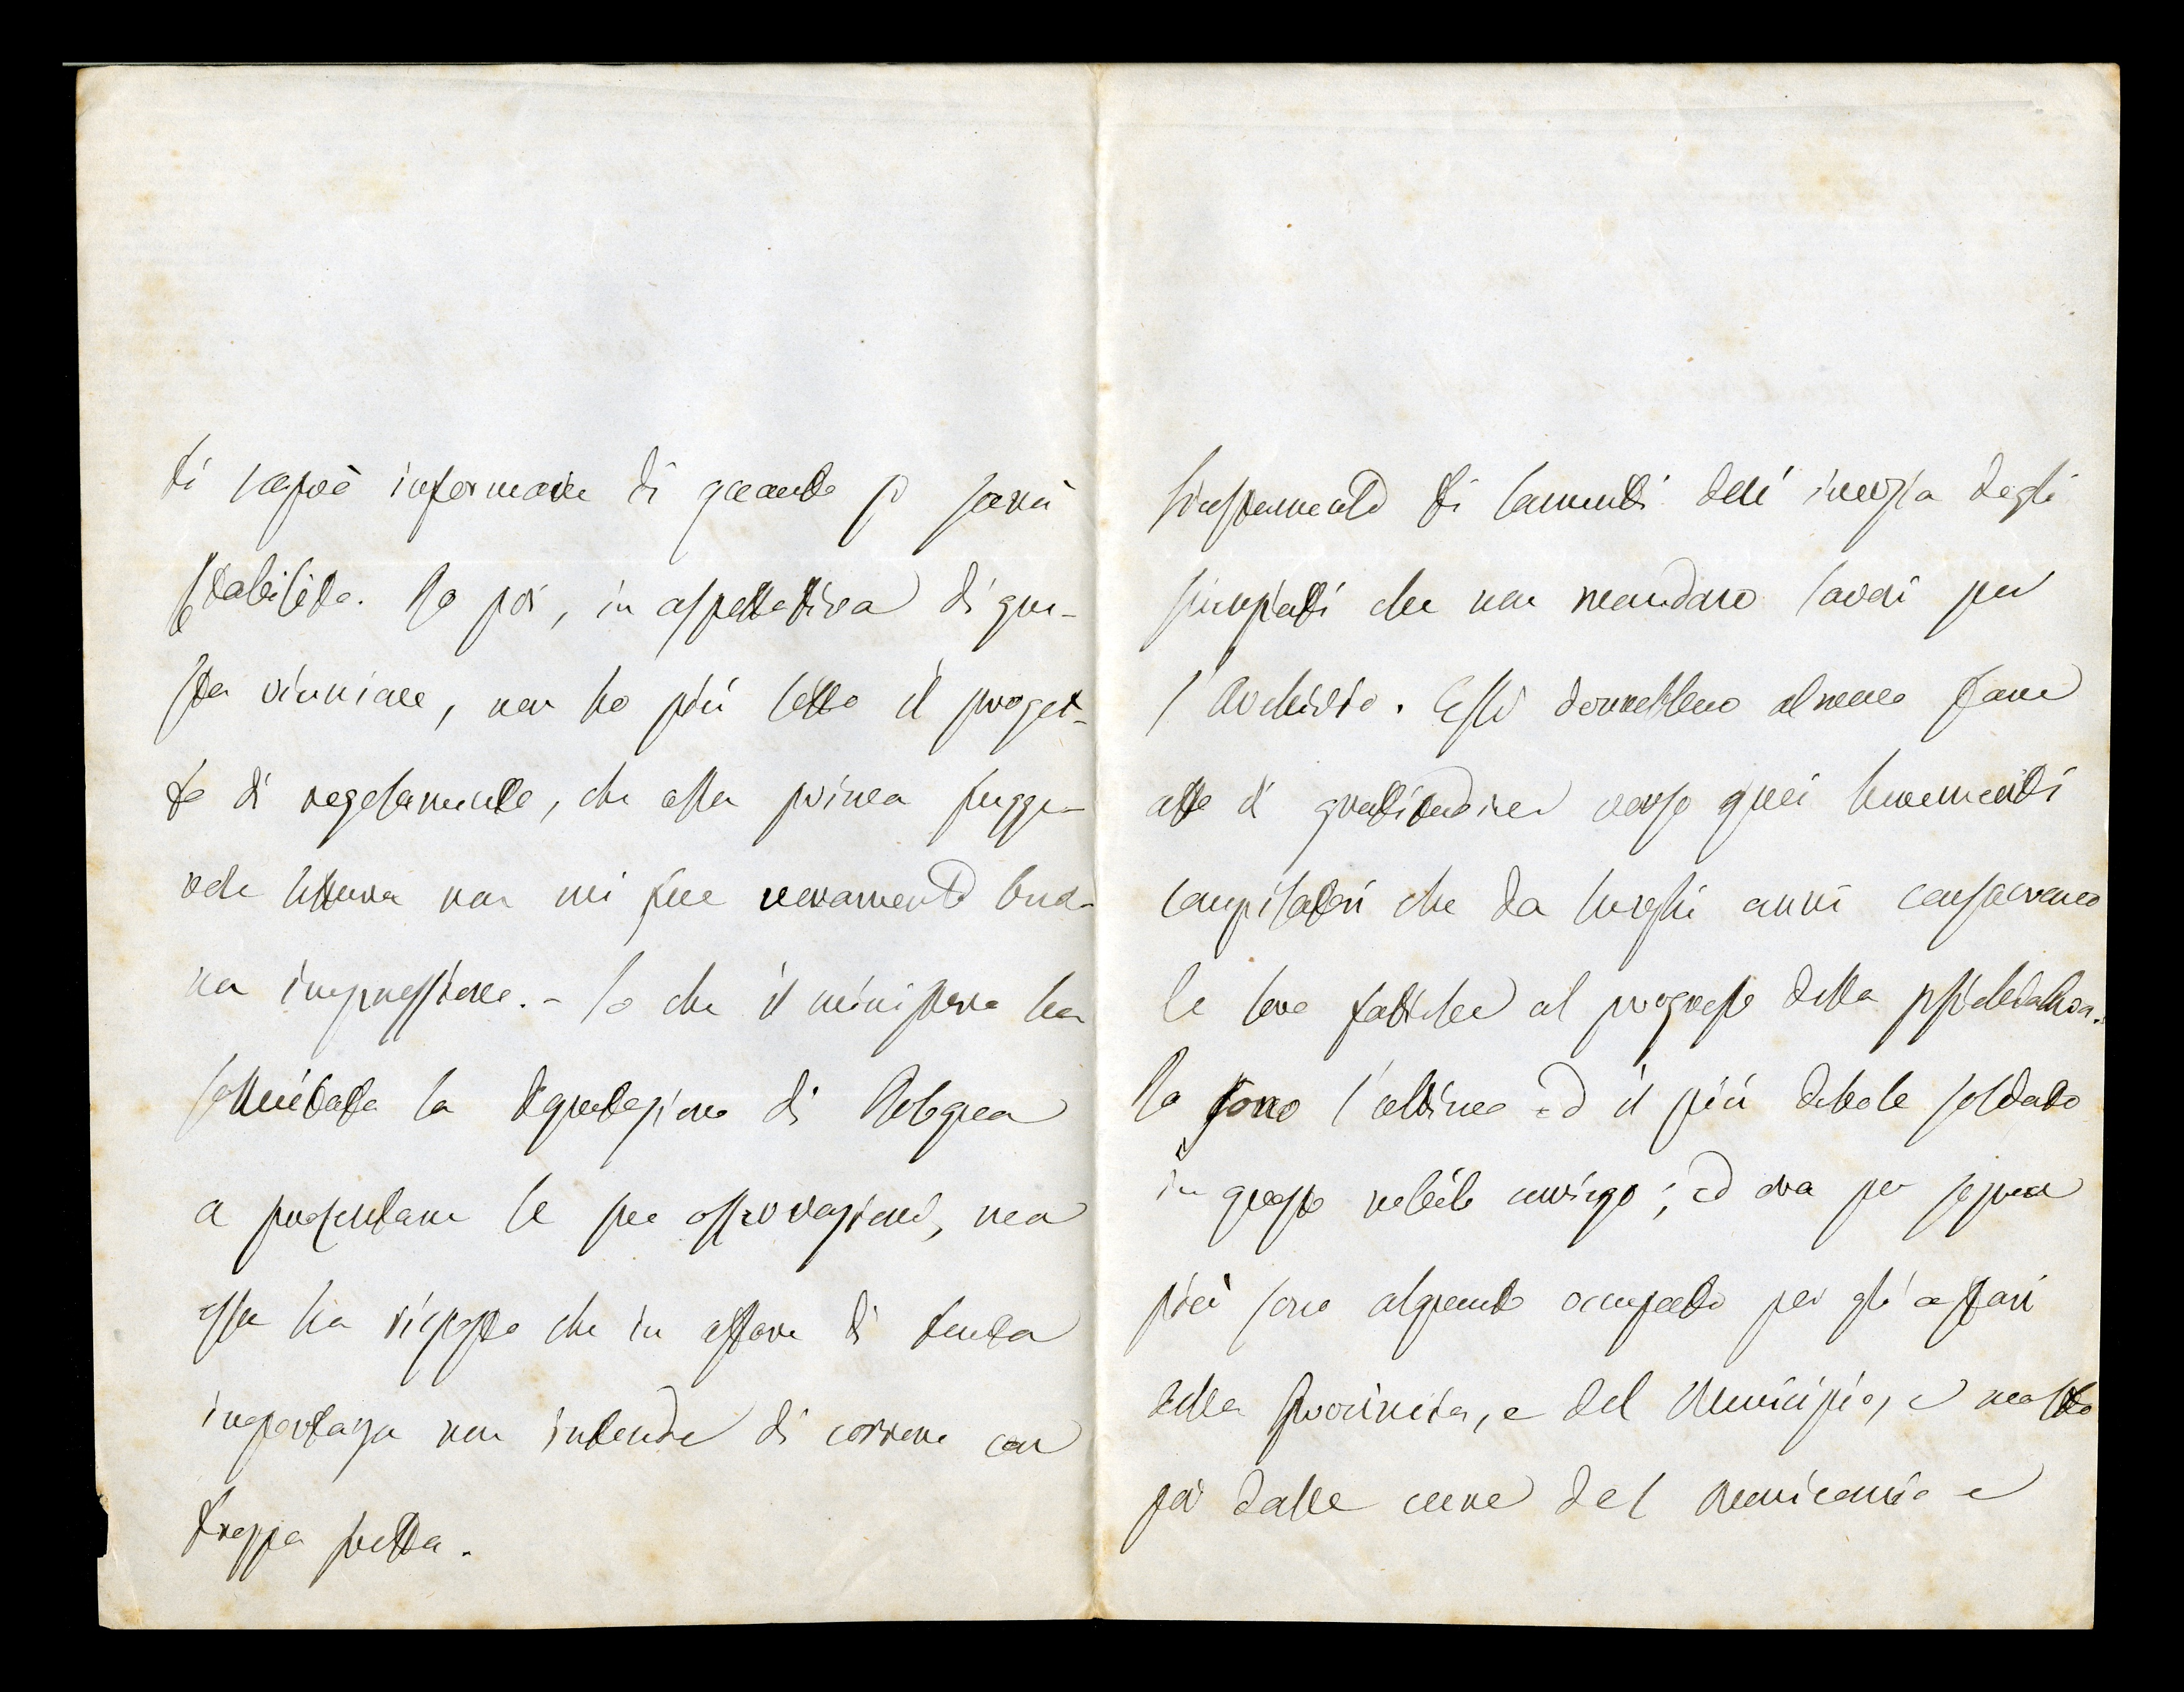 ti saprò informare di quanto si sarà
stabilito. Io poi, in aspettativa di que-
sta riunione, non ho più letto il proget-
to di regolamento, che alla prima fugge-
vole lettura non mi fece veramente buo-
na impressione. - So che il ministero ha
sollecitata la Deputazione di Bologna
a presentare le sue osservazioni, ma
essa ha risposto che in affare di tanta
importanza non intende di correre con
troppa fretta.
Giustamente ti lamenti dell'inerzia degli
psichiatri che non mandano lavori per
l'Archivio. Essi dovrebbero almeno fare
atto di gratitudine verso quei benemeriti
compilatori che da lunghi anni consacrano
le loro fatiche al progresso della psichiatria.
Io sono l'ultimo ed il più debole soldato
in questo nobile arringo; ed ora per
più sono alquanto occupato per gli affari
della Provincia, e del Municipio, e molto
poi dalle cure del manicomio e